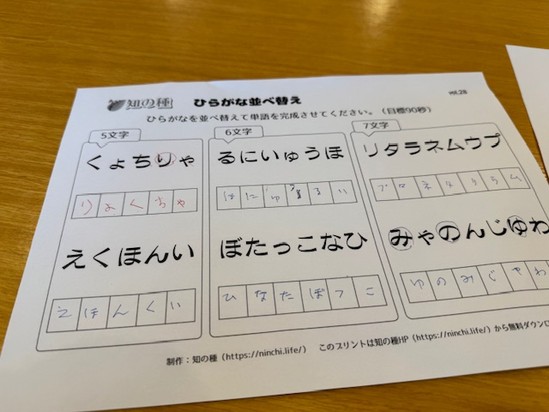 知の種 ひらがな並べ替え vol.28
ひらがなを並べ替えて単語を完成させてください。(目標90秒)
5文字
くょちりゃ
りょくちゃ
えくほんい
えほんくい
6文字
るにいゅうほ
ぼたっこなひ
ひなたぼっこ
7文字
リタラネムウプ
みゃのんじゆわ
制作:知の種(https://ninchi.life/) このプリントは知の種HP(https://ninchi.life/)から無料ダウンロ